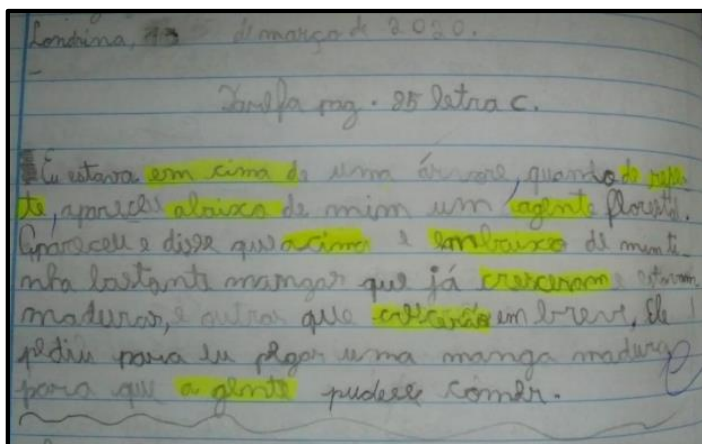 Londrina, 13 de março de 2020.
Tarefa pag. 25 letra c.
Eu estava em cima de uma árvore, quando de repen-
te, apareceu abaixo de mim um agente florestal.
Apareceu e disse que acima e embaixo de mim ti-
nha bastante mangas que já cresceram e estavam
maduras, e outras que crescerão em breve. Ele
pediu para eu pegar uma manga madura
para que a gente pudesse comer.